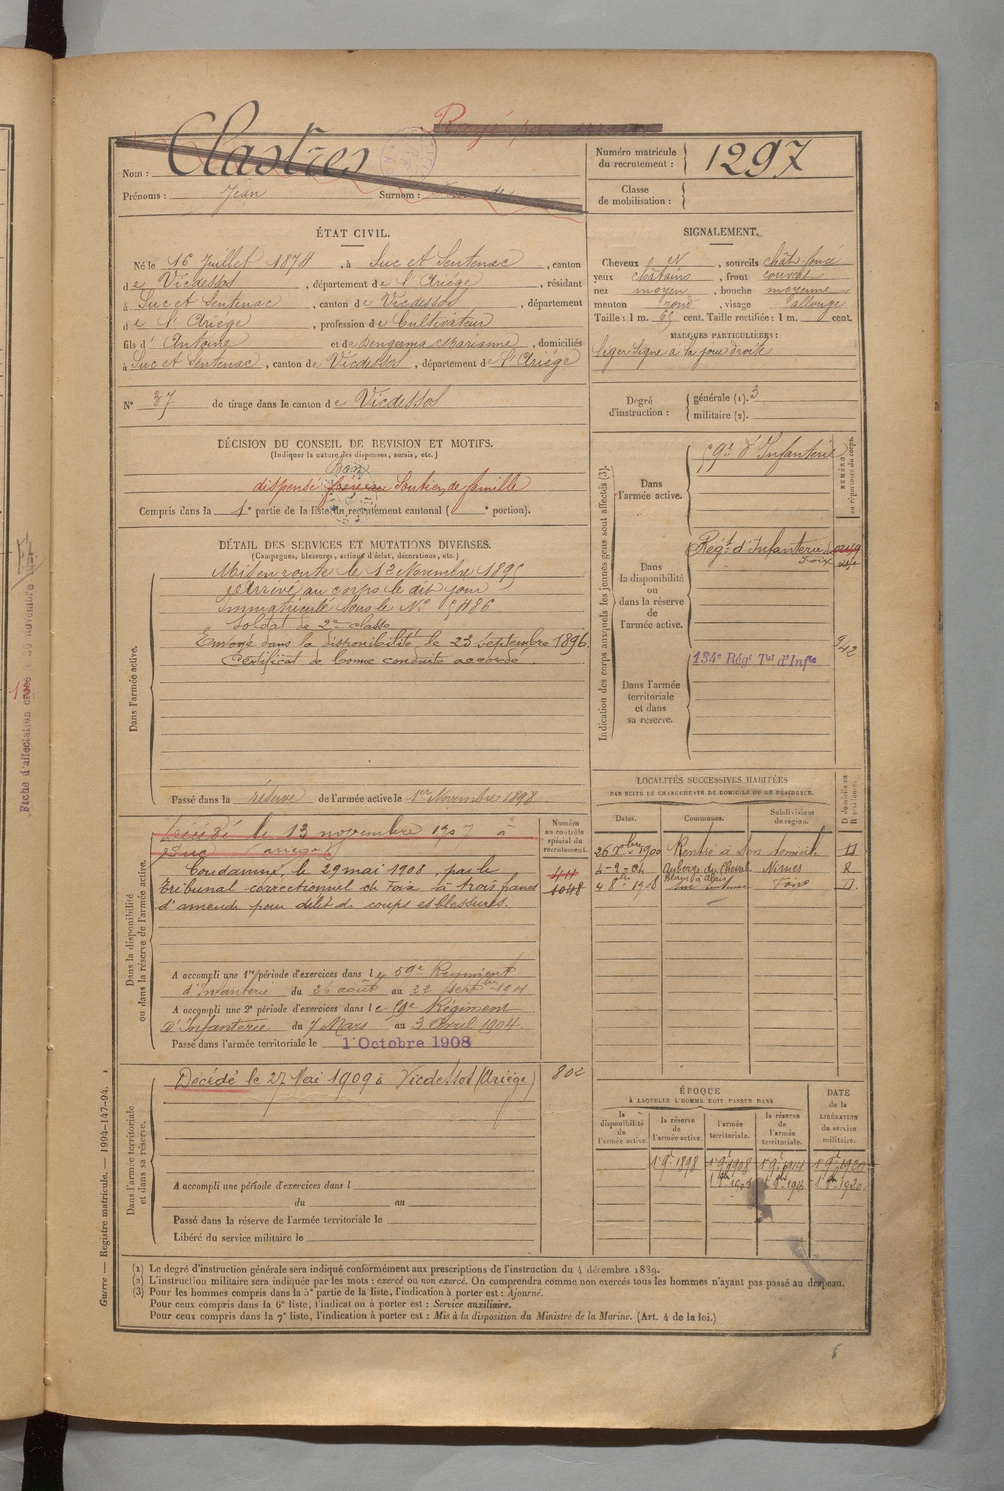 Rayé par erreur
Nom : Clastres
Prénoms : Jean Surnom :
Numéro matricule du recrutement : 1297
Classe de mobilisation :
ÉTAT CIVIL.
Né le 16 Juillet 1874, à Suc et Sentenac, canton
de Vicdessos, département de l'Ariége, résidant
à Suc et Sentenac, canton de Vicdessos, département
de l'Ariége, profession de Cultivateur
fils d'Antoine et de Dengerma Marianne, domiciliés
à Suc et Sentenac, canton de Vicdessos, département de l'Ariége
N° 37 de tirage dans le canton de Vicdessos
SIGNALEMENT.
Cheveux et N, sourcils chât. foncé
yeux châtains, front couvert
nez moyen, bouche moyenne
menton rond, visage allongé
Taille : 1 m. 65 cent. Taille rectifiée : 1 m. cent.
MARQUES PARTICULIÈRES :
léger signe à la joue droite
Degré d'instruction : générale (1). 3
militaire (2).
DÉCISION DU CONSEIL DE REVISION ET MOTIFS.
(Indiquer la nature des dispenses, sursis, etc.)
Bon
dispensé Soutien de famille
Compris dans la 1e partie de la liste du recrutement cantonal ( e portion).
DÉTAIL DES SERVICES ET MUTATIONS DIVERSES.
(Campagnes, blessures, actions d'éclat, décorations, etc.)
Dans l'armée active.
Mis en route le 13 Novembre 1895
Arrivé au corps le dit jour
Immatriculé sous le N° 5486
Soldat de 2e classe
Envoyé dans la disponibilité le 23 septembre 1896.
Certificat de bonne conduite accordé.
Passé dans la réserve de l'armée active le 1er Novembre 1898
Indication des corps auxquels les jeunes gens sont affectés (3).
NUMÉRO au répertoire du corps.
Dans l'armée active.
59e d'Infanterie
Dans la disponibilité ou dans la réserve de l'armée active.
Régt. d'Infanterie
Foix
Dans l'armée territoriale et dans sa réserve.
134e Régt Tal d'Infie
9/42
LOCALITÉS SUCCESSIVES HABITÉES
PAR SUITE DE CHANGEMENTS DE DOMICILE OU DE RÉSIDENCE.
Dates. Communes. Subdivisions de région. D domicile ou R résidence.
26 Xbre 1900 Rentré à son domicile D
4-2-04 Auberge du Cheval Nimes R
Foix D.
Dans la disponibilité ou dans la réserve de l'armée active.
Numéro au contrôle spécial du recrutement.
Décédé le 13 novembre 1907 à
Suc (ariège)
Condamné, le 29 mai 1908, par le
Tribunal correctionnel de Foix à trois francs
d'amende pour délit de coups et blessures.
1048
A accompli une 1re période d'exercices dans le 59e Régiment
d'Infanterie du 26 août au 22 septbre 1901
A accompli une 2e période d'exercices dans le 59e Régiment
d'Infanterie du 7 Mars au 3 Avril 1904.
Passé dans l'armée territoriale le 1 Octobre 1908
Dans l'armée territoriale et dans sa réserve.
Décédé le 27 Mai 1909 à Vicdessos (Ariège) 802
A accompli une période d'exercices dans l
du au
Passé dans la réserve de l'armée territoriale le
Libéré du service militaire le
ÉPOQUE
À LAQUELLE L'HOMME DOIT PASSER DANS
la disponibilité de l'armée active. la réserve de l'armée active. l'armée territoriale. la réserve de l'armée territoriale.
DATE de la LIBÉRATION du service militaire.
1er 9bre 1898 1er 9bre 1908 1er 9bre 1914 1er 9bre 1920
(1) Le degré d'instruction générale sera indiqué conformément aux prescriptions de l'instruction du 4 décembre 1889.
(2) L'instruction militaire sera indiquée par les mots : exercé ou non exercé. On comprendra comme non exercés tous les hommes n'ayant pas passé au drapeau.
(3) Pour les hommes compris dans la 5e partie de la liste, l'indication à porter est : Ajourné.
Pour ceux compris dans la 6e liste, l'indication à porter est : Service auxiliaire.
Pour ceux compris dans la 7e liste, l'indication à porter est : Mis à la disposition du Ministre de la Marine. (Art. 4 de la loi.)
Guerre — Registre matricule. — 1994-147-94.
6